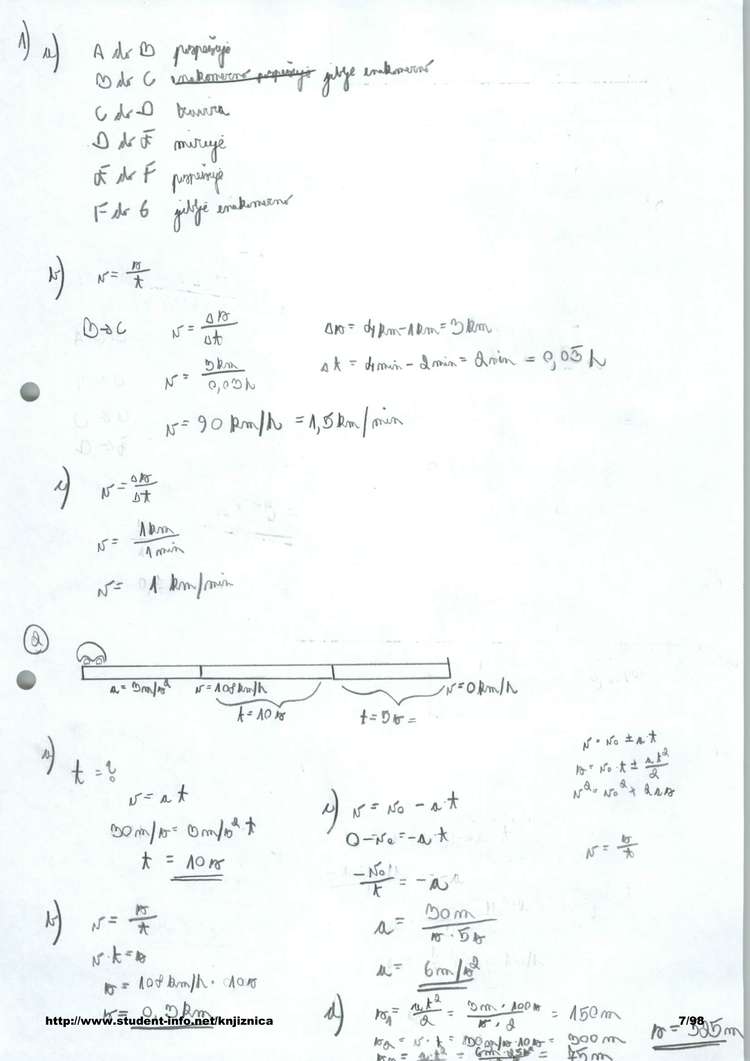 1) a) A do B pospešuje
B do C enakomerno pospešuje giblje enakomerno
C do D zavira
D do E miruje
E do F pospešuje
F do G giblje enakomerno
b) v = s/t
B→C v = Δs/Δt Δs = 4km-1km = 3km
v = 3km/0,03h Δt = 4min - 2min = 2min = 0,03h
v = 90 km/h = 1,5km/min
c) v = Δs/Δt
v = 1km/1min
v = 1 km/min
2
a = 3m/s² v = 108km/h v = 0km/h
t = 10s t = 5s =
a) t = ?
v = a t
30m/s = 3m/s² t
t = 10s
v = v₀ ± a t
s = v₀ · t ± a t²/2
v² = v₀² ± 2as
v = s/t
c) v = v₀ - a t
0 - v₀ = -a t
-v₀/t = -a
a = 30m/s · 5s
a = 6m/s²
b) v = s/t
v · t = s
s = 108km/h · 10s
s = 0,3km
d) s₁ = a t²/2 = 3m · 100s/s · 2 = 150m
s₂ = v · t = 30m/s · 10s = 300m
= 75m
s = 525m
http://www.student-info.net/knjiznica
7/98